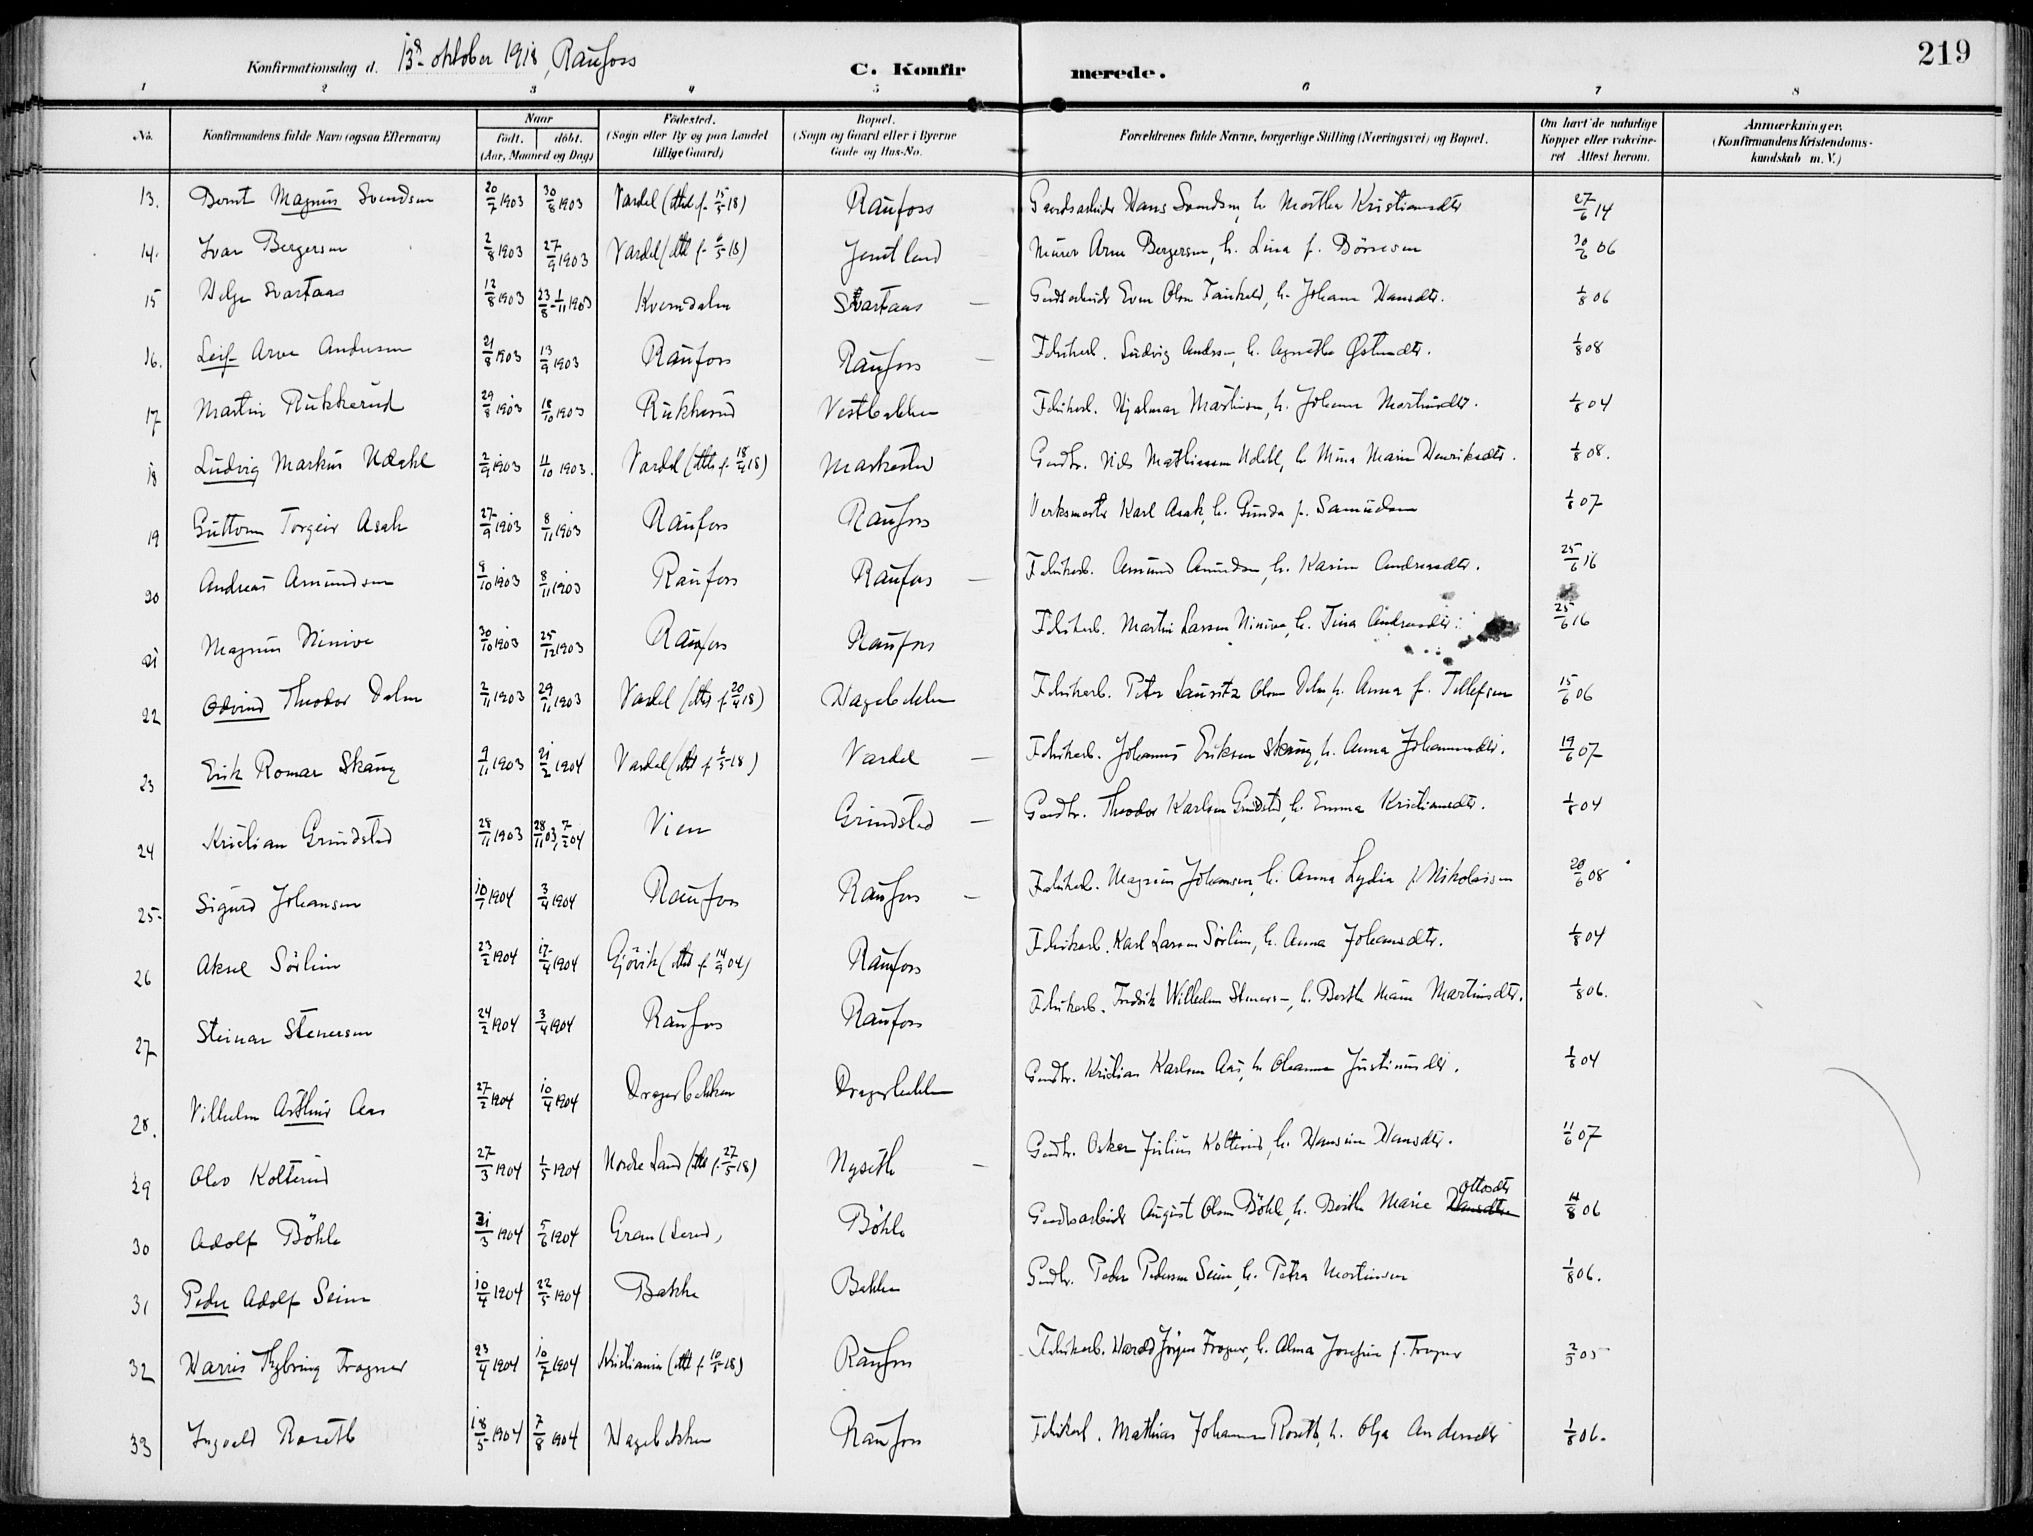 219
Konfirmationsdag d. 13de oktober 1918, Raufoss
C. Konfir merede.
1 2 3 4 5 6 7 8
No. Konfirmandens fulde Navn (ogsaa Efternavn) Naar født. døbt. (Aar, Maaned og Dag) Fødested. (Sogn eller By og paa Landet tillige Gaard) Bopæl. (Sogn og Gaard eller i Byerne Gade og Hus-No. Forældrenes fulde Navne, borgerlige Stilling (Næringsvei) og Bopæl. Om havt de naturlige Kopper eller vakcineret Attest herom. Anmærkninger. (Konfirmandens Kristendomskundskab m. V.)
13. Bernt Magnus Svendsen 20/7 1903 30/8 1903 Vardal (attest f. 15/5 18) Raufoss Gaardsarbeider Hans Svendsen, h. Marthe Kristiansdtr 27/6 14
14. Ivar Bergersen 2/8 1903 27/9 1903 Vardal (attest f. 6/5 18) Jemtland Murer Arne Bergersen, h. Lina f. Børresen 30/6 06
15 Helge Svartaas 12/8 1903 23/8 - 1/11 1903 Kverndalen Svartaas Even Olsen h. Johanne Hansdtr. 1/8 06
16. Leif Arve Andersen 21/8 1903 13/9 1903 Raufoss Raufoss Fabrikarb. Ludvig Andersen, h. Agnethe 1/8 08
17 Martin Rukkerud 29/8 1903 18/10 1903 Rukkerud Vestbakken Fabrikarb. Hjalmar Martinsen, h. Johanne Martinsdtr. 1/8 04
18 Ludvig Markus Ødahl 2/9 1903 11/10 1903. Vardal (attest f. 18/4 18) Gaardbr. Nils Mathiassen h. Mina Marie Henriksdtr. 1/8 08.
19 Guttorm Torgeir Asak 27/9 1903 8/11 1903 Raufoss Raufoss Verksmester Karl Asak, h. Gunda f. Samuelsen 1/8 07
20 Andreas Amundsen 9/10 1903 8/11 1903 Raufoss Raufoss Fabrikarb. Amund Amundsen, h. Karine Andreasdtr. 25/6 16
21 Magnus Ninive 30/10 1903 25/12 1903 Raufoss Raufoss Fabrikarb. Martin Larsen Ninive, h. Tina Andreasdtr. 25/6 16
22 Odvind Theodor Dalen 2/11 1903 29/11 1903 Vardal (attest f. 20/4 18) Hagebakken Fabrikarb. Petter Lauritz Olsen Dalen, h. Anna f. Tollefsen 15/6 06
23 Erik Romar Skaug 9/11 1903 21/2 1904 Vardal (attest f. 6/5 18) Vardal Fabrikarb. Johannes Eriksen Skaug, h. Anna Johannesdtr. 19/6 07
24 Kristian Grundstad 28/11 1903 28/11 03, 7/2 04 Vien Grundstad Gaardbr. Theodor Karlsen Grundstad, h. Emma Kristiansdtr. 1/8 04
25. Sigurd Johansen 10/1 1904 3/4 1904 Raufoss Raufoss Fabrikarb. Magnus Johansen, h. Anna Lydia f. Nikolaisen 20/6 08
26 Aksel Sørlien 23/2 1904 17/4 1904 Gjövik (attest f. 14/9 04) Raufoss Fabrikarb. Karl Larsen Sørlien, h. Anna Johansdtr. 1/8 04
27 Steinar Stenersen 24/2 1904 3/4 1904 Raufoss Raufoss Fabrikarb. Fredrik Wilhelm Stenersen, h. Berthe Marie Martinsdtr. 1/8 06.
28. Vilhelm Arthur Aas 27/2 1904 10/4 1904 Dragerbakken Dragerbakken Gaardbr. Kristian Karlsen Aas, h. Oleanna Justinusdtr. 1/8 04
29 Olav Kolterud 27/3 1904 1/5 1904 Nordre Land (attest f. 27/5 18) Nyseth Gaardbr. Oskar Julius Kolterud, h. Hansine Hansdtr. 11/6 07
30 Adolf Böhle 31/3 1904 5/6 1904 Gran (Lered) Böhle Gaardsarbeider August Olsen Böhle, h. Berthe Marie Hansdtr Ottosdtr 14/8 06
31 Peder Adolf Seim 10/4 1904 22/5 1904 Bakke Bakken Gaardbr. Peder Pedersen Seim, h. Petra Martinsen 1/8 06.
32 Harris Thybring Trogner 23/4 1904 10/7 1904 Kristiania (attest f. 10/5 18) Raufoss Fabrikarb. Harald Jörgen Trogner, h. Alma Josefine f. Trogner 2/3 05
33 Ingvald Roseth 18/5 1904 7/8 1904 Hagebakken Raufoss Fabrikarb. Mathias Johannesen Roseth, h. Olga Andersdtr 1/8 06.